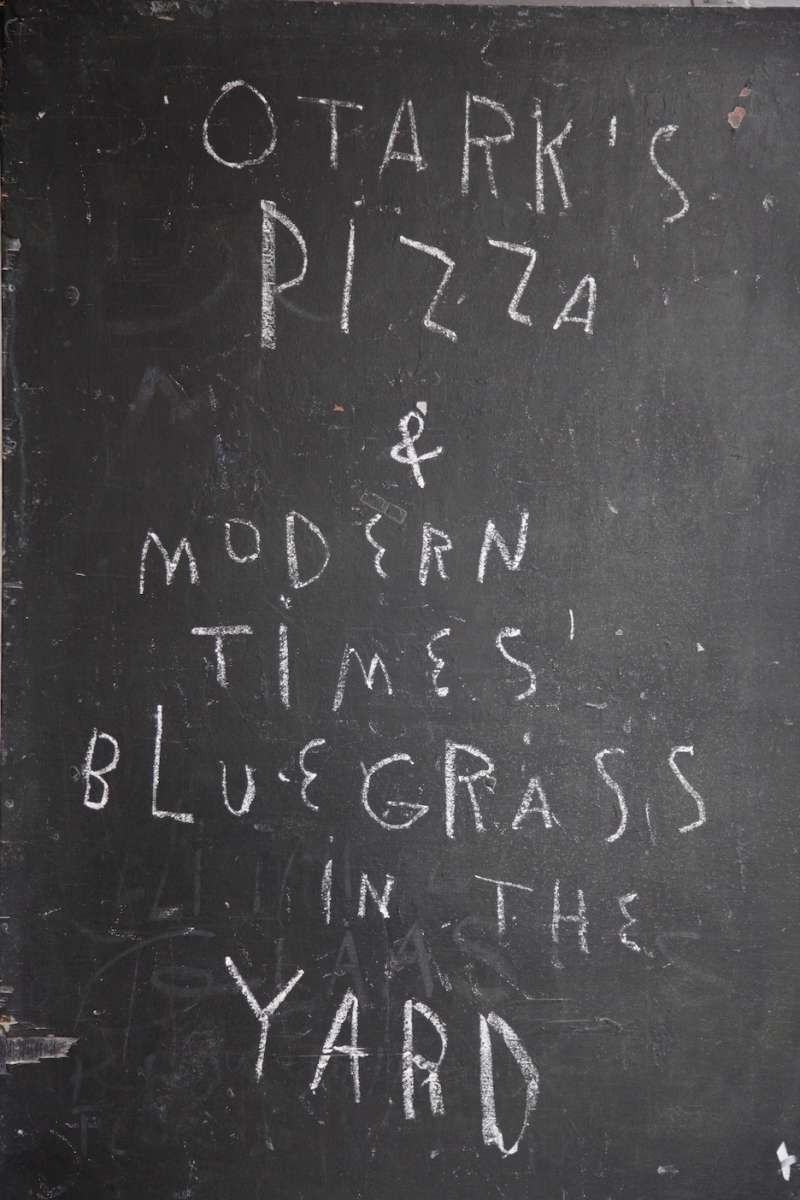 OTARK'S
PIZZA
&
MODERN
TIMES'
BLUEGRASS
IN THE
YARD